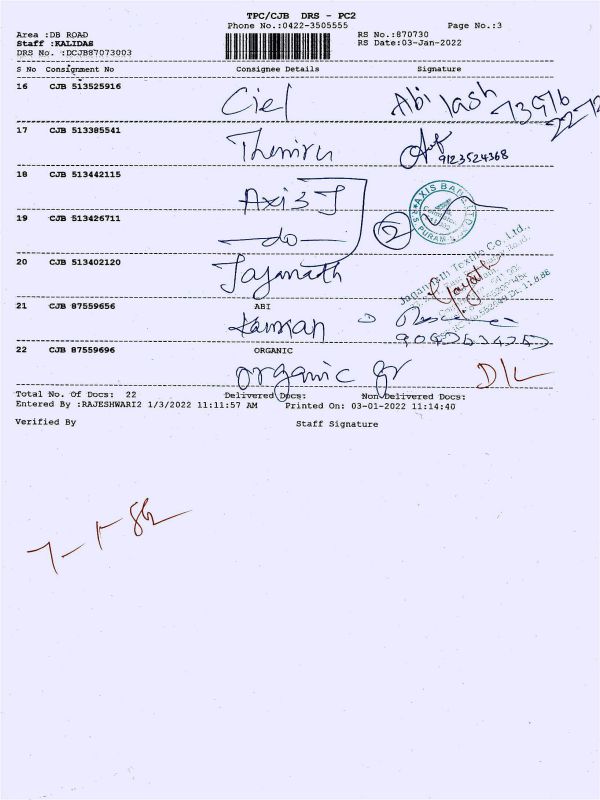 TPC/CJB DRS - PC2
Phone No.:0422-3505555 Page No.:3
Area :DB ROAD RS No.:870730
Staff :KALIDAS RS Date:03-Jan-2022
DRS No. :DCJB87073003
S No Consignment No Consignee Details Signature
16 CJB 513525916 Ciel Abilash
17 CJB 513385541 9123524368
18 CJB 513442115 Axis
AXIS BANK LTD
19 CJB 513426711 do 2
20 CJB 513402120 Jaganath
Jagannath Textile Co .Ltd.,
21 CJB 87559656 ABI
Kannan
22 CJB 87559696 ORGANIC
organic gr D/L
Total No. Of Docs: 22 Delivered Docs: Non Delivered Docs:
Entered By :RAJESHWARI2 1/3/2022 11:11:57 AM Printed On: 03-01-2022 11:14:40
Verified By Staff Signature